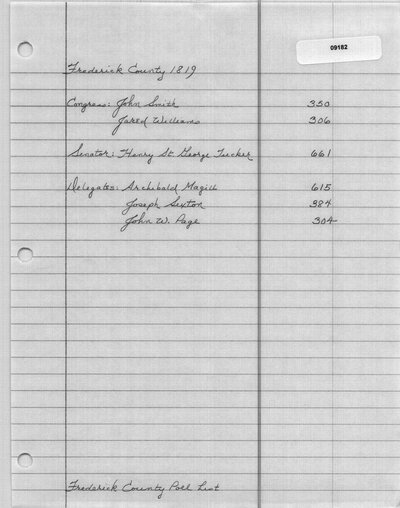 09182
Frederick County 1819
Congress: John Smith 350
Jared Williams 306
Senator: Henry St. George Tucker 661
Delegates: Archibald Magill 615
Joseph Sexton 384
John W. Page 304
Frederick County Poll List